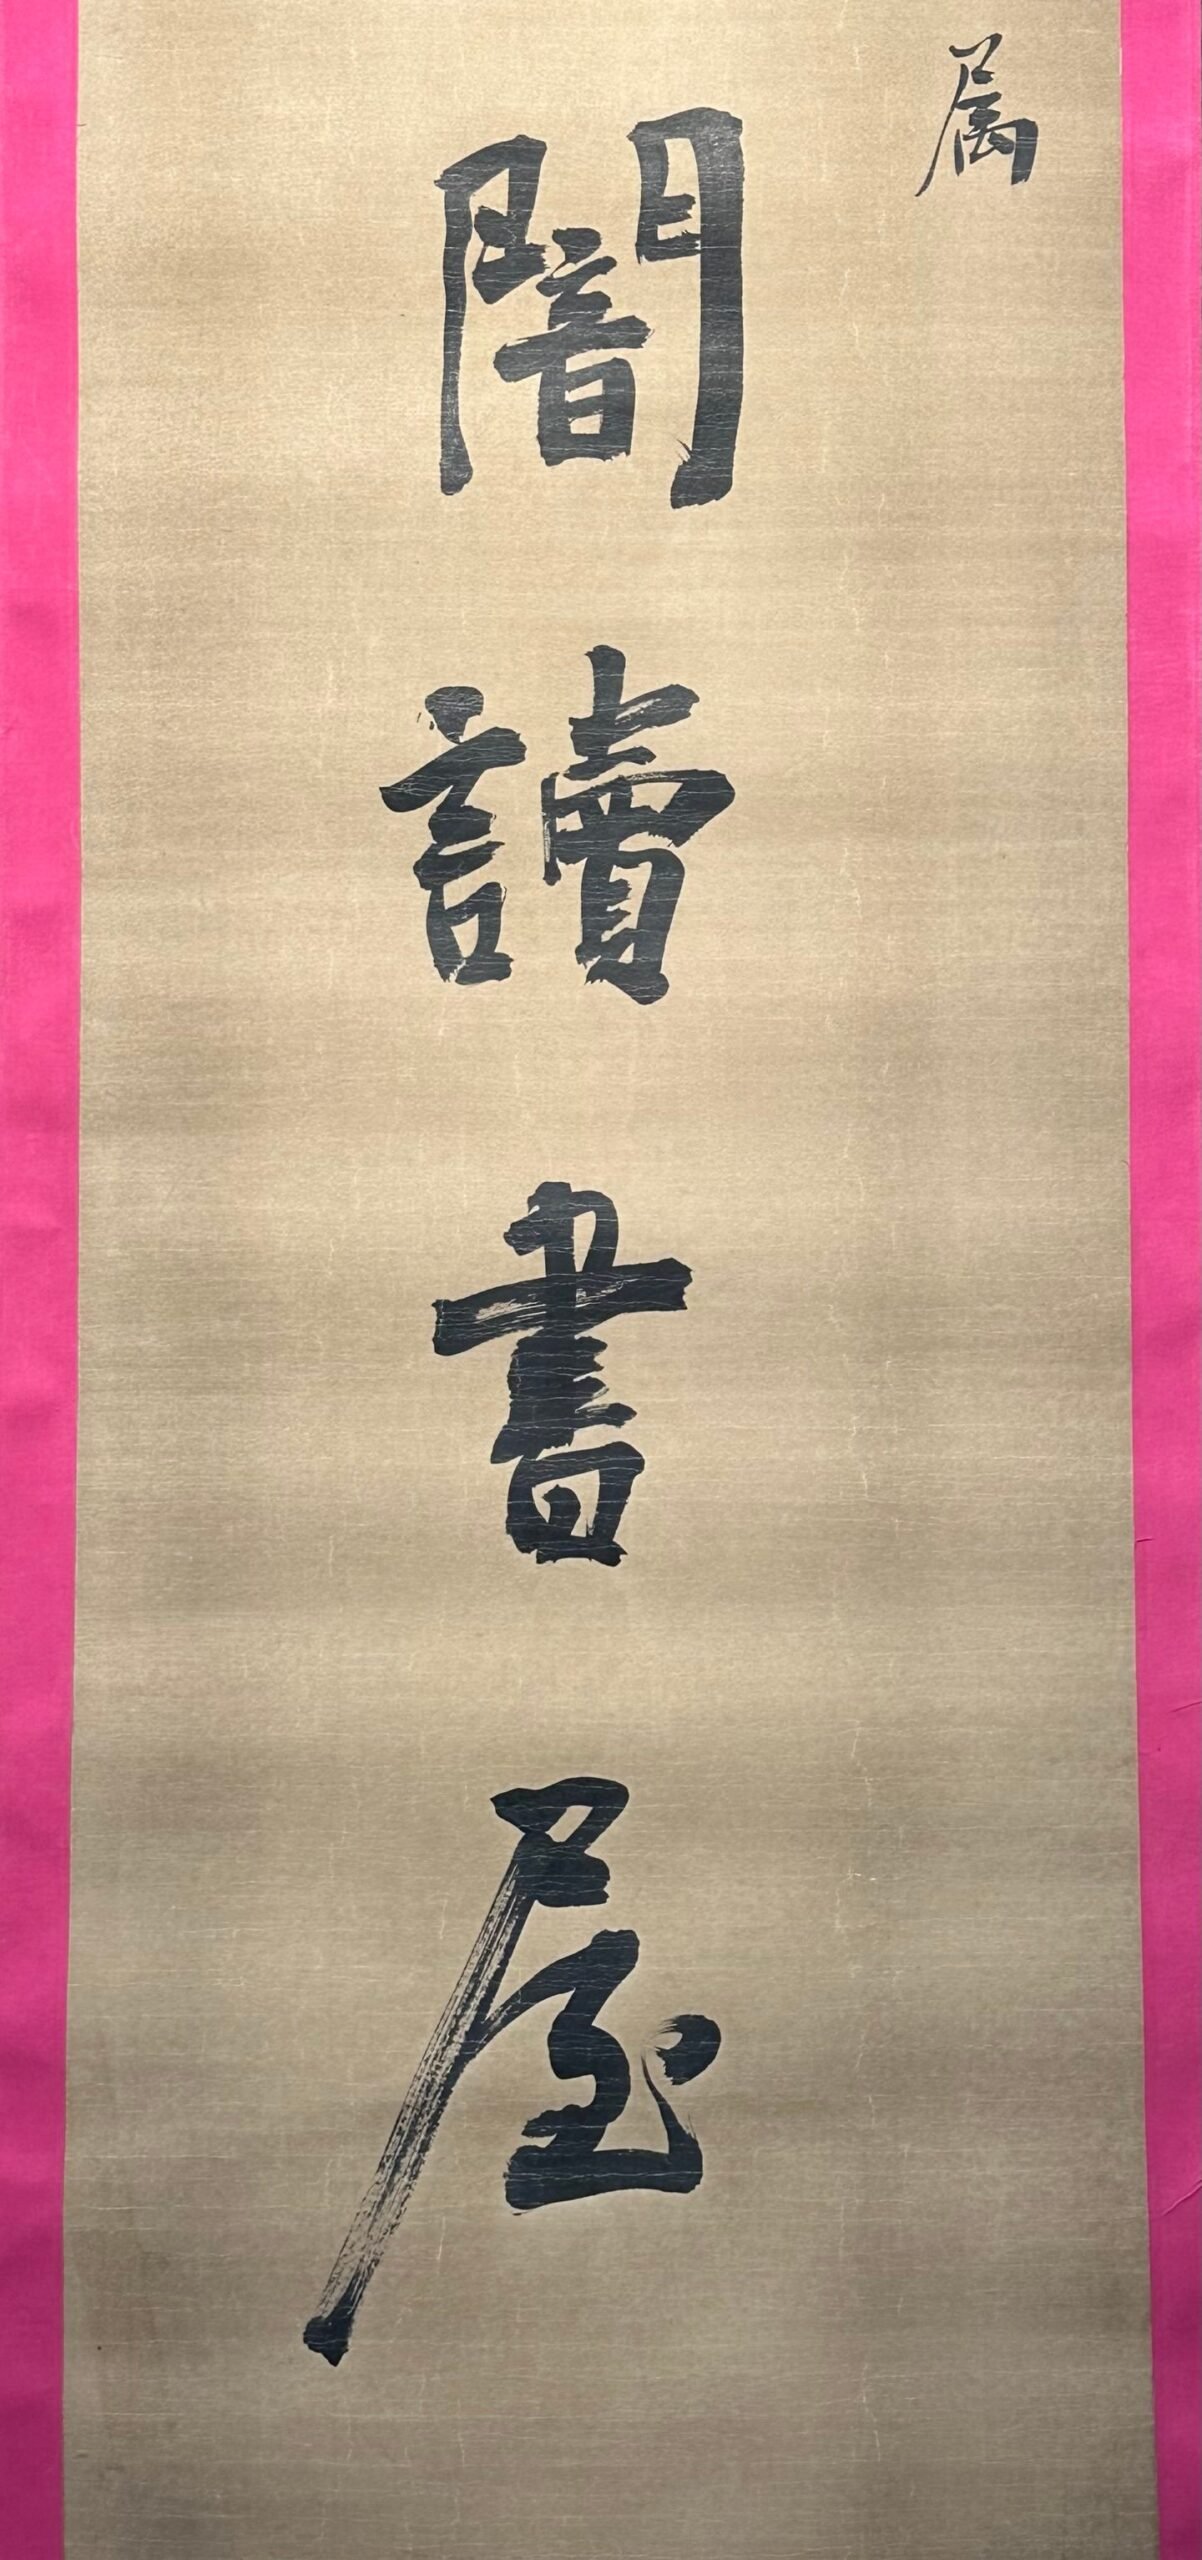 属
闇讀書屋